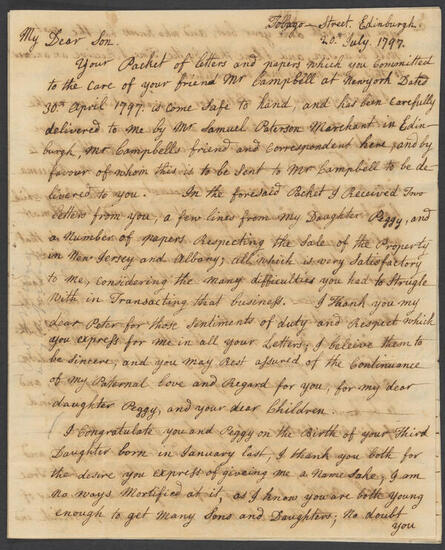 Tobago Street. Edinburgh.
20th July. 1797.
My Dear Son.
Your Packet of letters and papers which you Committed
to the care of your friend Mr Campbell at Newyork Dated
30th April 1797. is come Safe to hand, and has been carefully
delivered to me by Mr Samuel Paterson Marchant in Edin-
burgh, Mr Campbells friend and Correspondent here, and by
favour of whom this is to be Sent to Mr Campbell to be de-
livered to you. In the foresaid Packet I Received Two
Letters from you, a few lines from my Daughter Peggy, and
a Number of papers Respecting the Sale of the Property
in New Jersey and Albany; all which is very Satisfactory
to me, Considering the many difficulties you had to Strugle
With in Transacting that business. I Thank you my
dear Peter for those Sentiments of duty and Respect which
you express for me in all your Letters; I beleive them to
be Sincere, and you may Rest assured of the Continuance
of my Paternal Love and Regard for you, for my dear
daughter Peggy, and your dear Children.
I Congratulate you and Peggy on the Birth of your Third
Daughter born in January last, I thank you both for
the desire you express of giveing me a Name Sake, I am
no ways Mortified at it, as I know you are both young
enough to get Many Sons and Daughters; No doubt
you